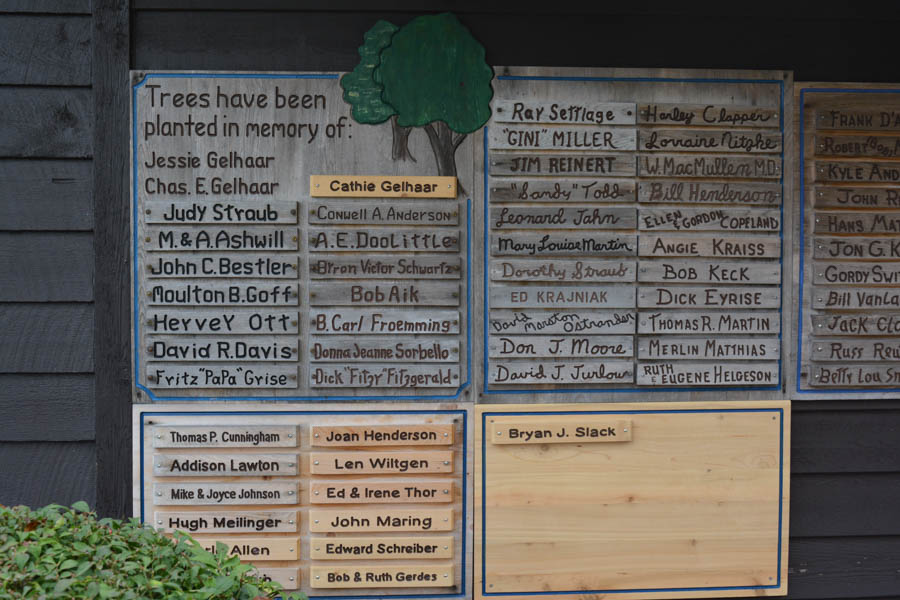 Trees have been
planted in memory of:
Jessie Gelhaar
Chas. E. Gelhaar
Judy Straub
M. & A. Ashwill
John C. Bestler
Moulton B. Goff
Hervey Ott
David R. Davis
Fritz "PaPa" Grise
Cathie Gelhaar
Conwell A. Anderson
A. E. Doolittle
Byron Victor Schwartz
Bob Aik
B. Carl Froemming
Donna Jeanne Sorbello
Dick "Fitzy" Fitzgerald
Ray Settlage
"GINI" MILLER
JIM REINERT
"Sandy" Todd
Leonard Jahn
Mary Louise Martin
Dorothy Straub
ED KRAJNIAK
David Marston Ostrander
Don J. Moore
David J. Turlow
Harley Clapper
Lorraine Nitzke
W. MacMullen M.D.
Bill Henderson
ELLEN & GORDON COPELAND
ANGIE KRAISS
BOB KECK
DICK EYRISE
THOMAS R. MARTIN
MERLIN MATTHIAS
RUTH
& EUGENE HELGESON
FRANK D'A
ROBERT
KYLE AND
JOHN R
HANS MAT
JON G. K
GORDY SWI
BILL VANLA
JACK CLO
RUSS REU
BETTY LOU SN
Thomas P. Cunningham
Addison Lawton
Mike & Joyce Johnson
Hugh Meilinger
Allen
Joan Henderson
Len Wiltgen
Ed & Irene Thor
John Maring
Edward Schreiber
Bob & Ruth Gerdes
Bryan J. Slack